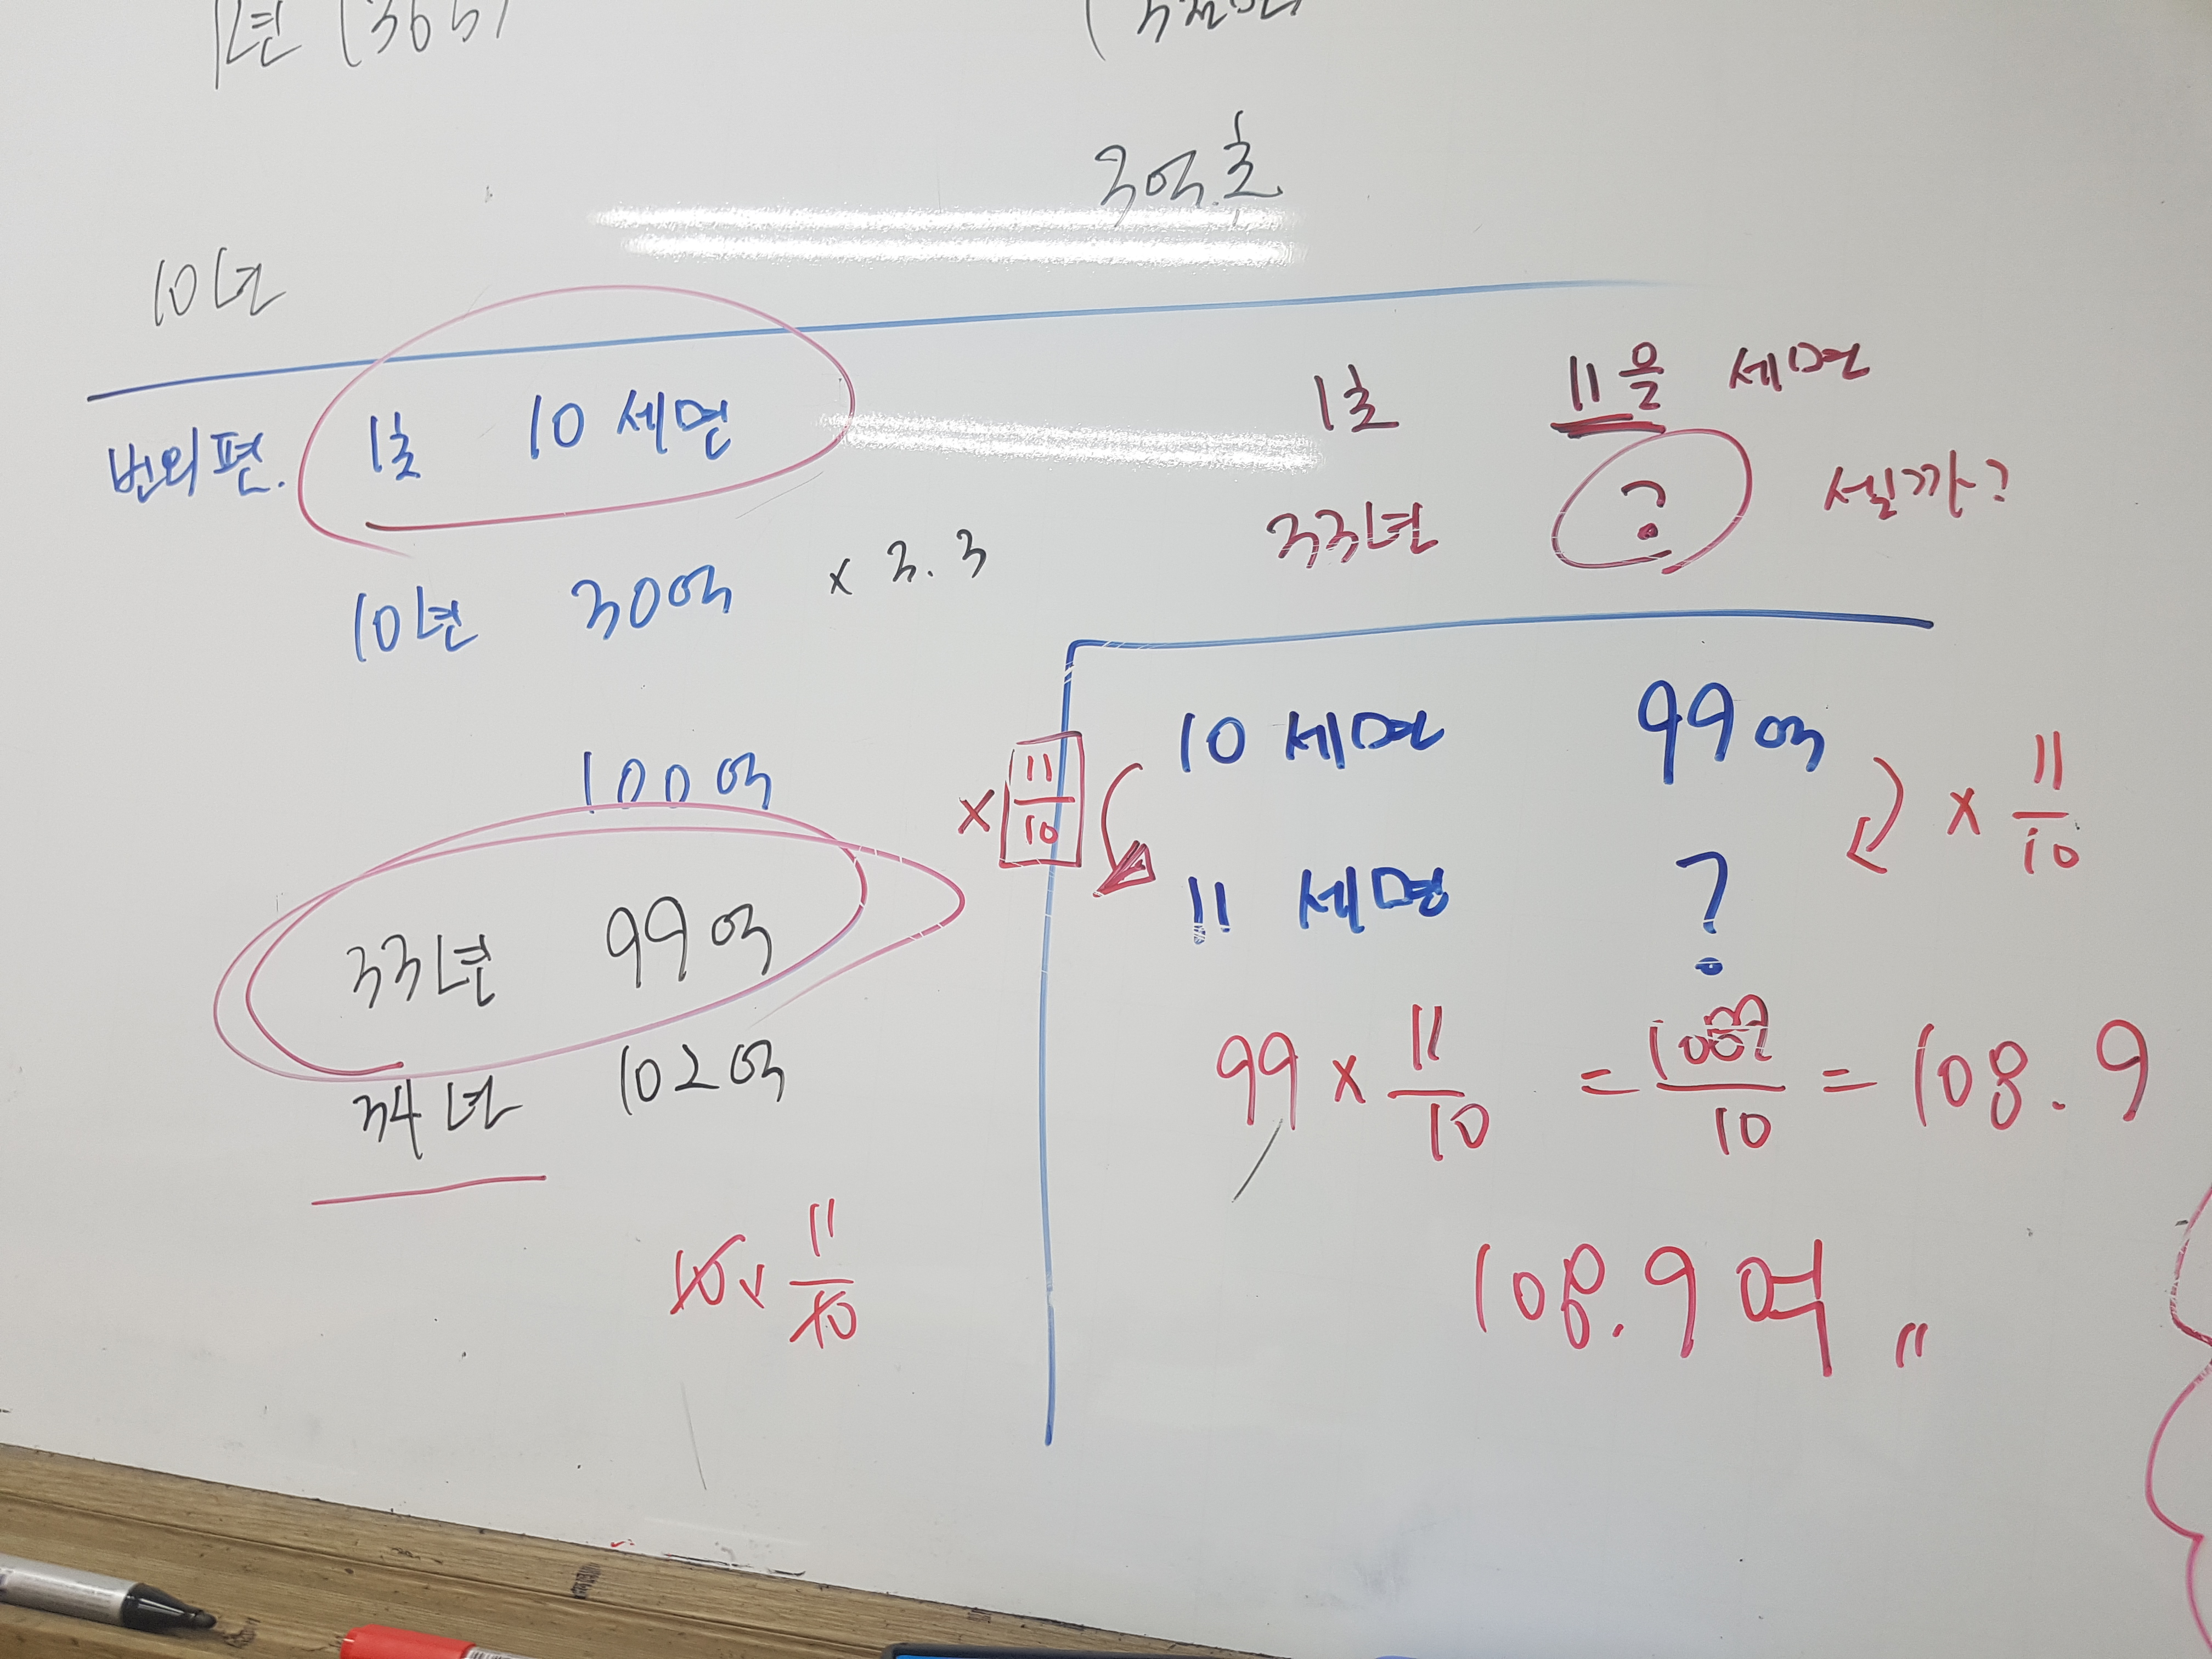 1년 (365
3억초
10년
번외편. 1초 10 세면
10년 30억 × 3.3
100억
33년 99억
34년 102억
11
10
1초 11을 세면
33년 ? 셀까?
× 11/10
10 세면 99억
× 11/10
11 세면 ?
99 × 11/10 = 1089/10 = 108.9
108.9 억 〃